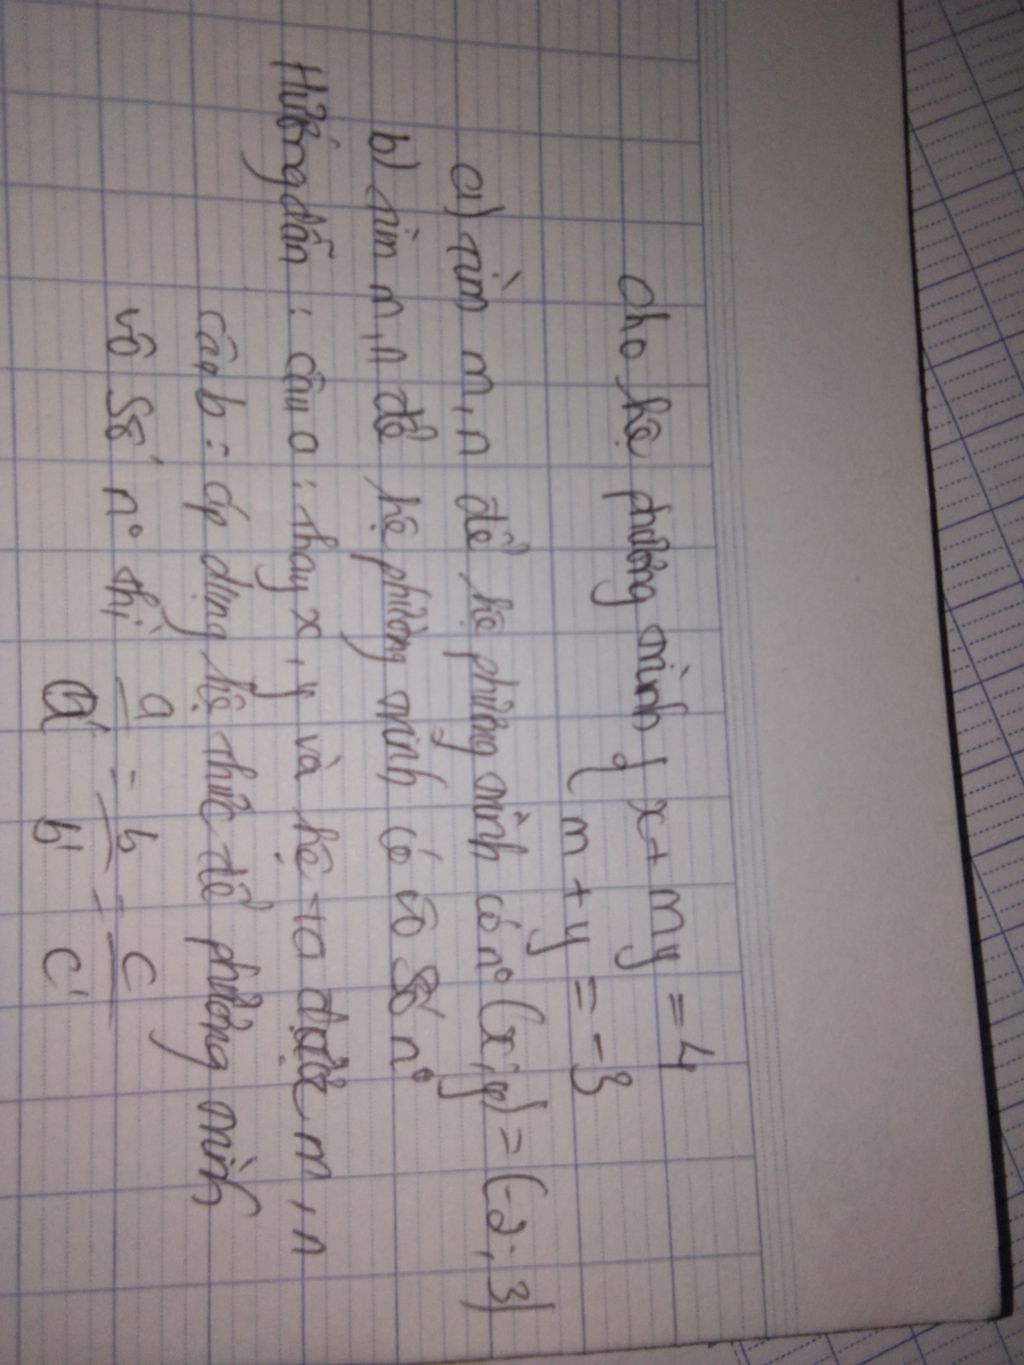 Cho hệ phương trình { x + my = 4
{ m + y = -3
a) tìm m, n để hệ phương trình có n° (x; y) = (-2; 3)
b) tìm m, n để hệ phương trình có vô số n°
Hướng dẫn : câu a : thay x, y và hệ ta được m, n
câu b : áp dụng hệ thức để phương trình
vô số n° thì a/a' = b/b' = c/c'